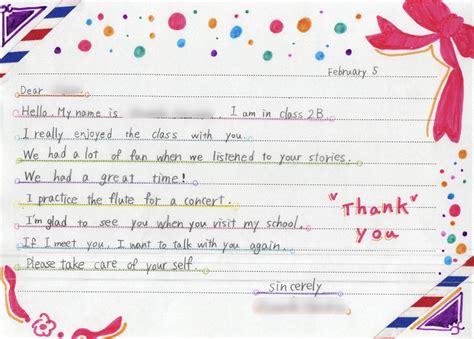 February 5
Dear
Hello. My name is . I am in class 2B.
I really enjoyed the class with you.
We had a lot of fun when we listened to your stories.
We had a great time!
I practice the flute for a concert.
"Thank
you
I'm glad to see you when you visit my school.
If I meet you, I want to talk with you again.
Please take care of your self.
sincerely